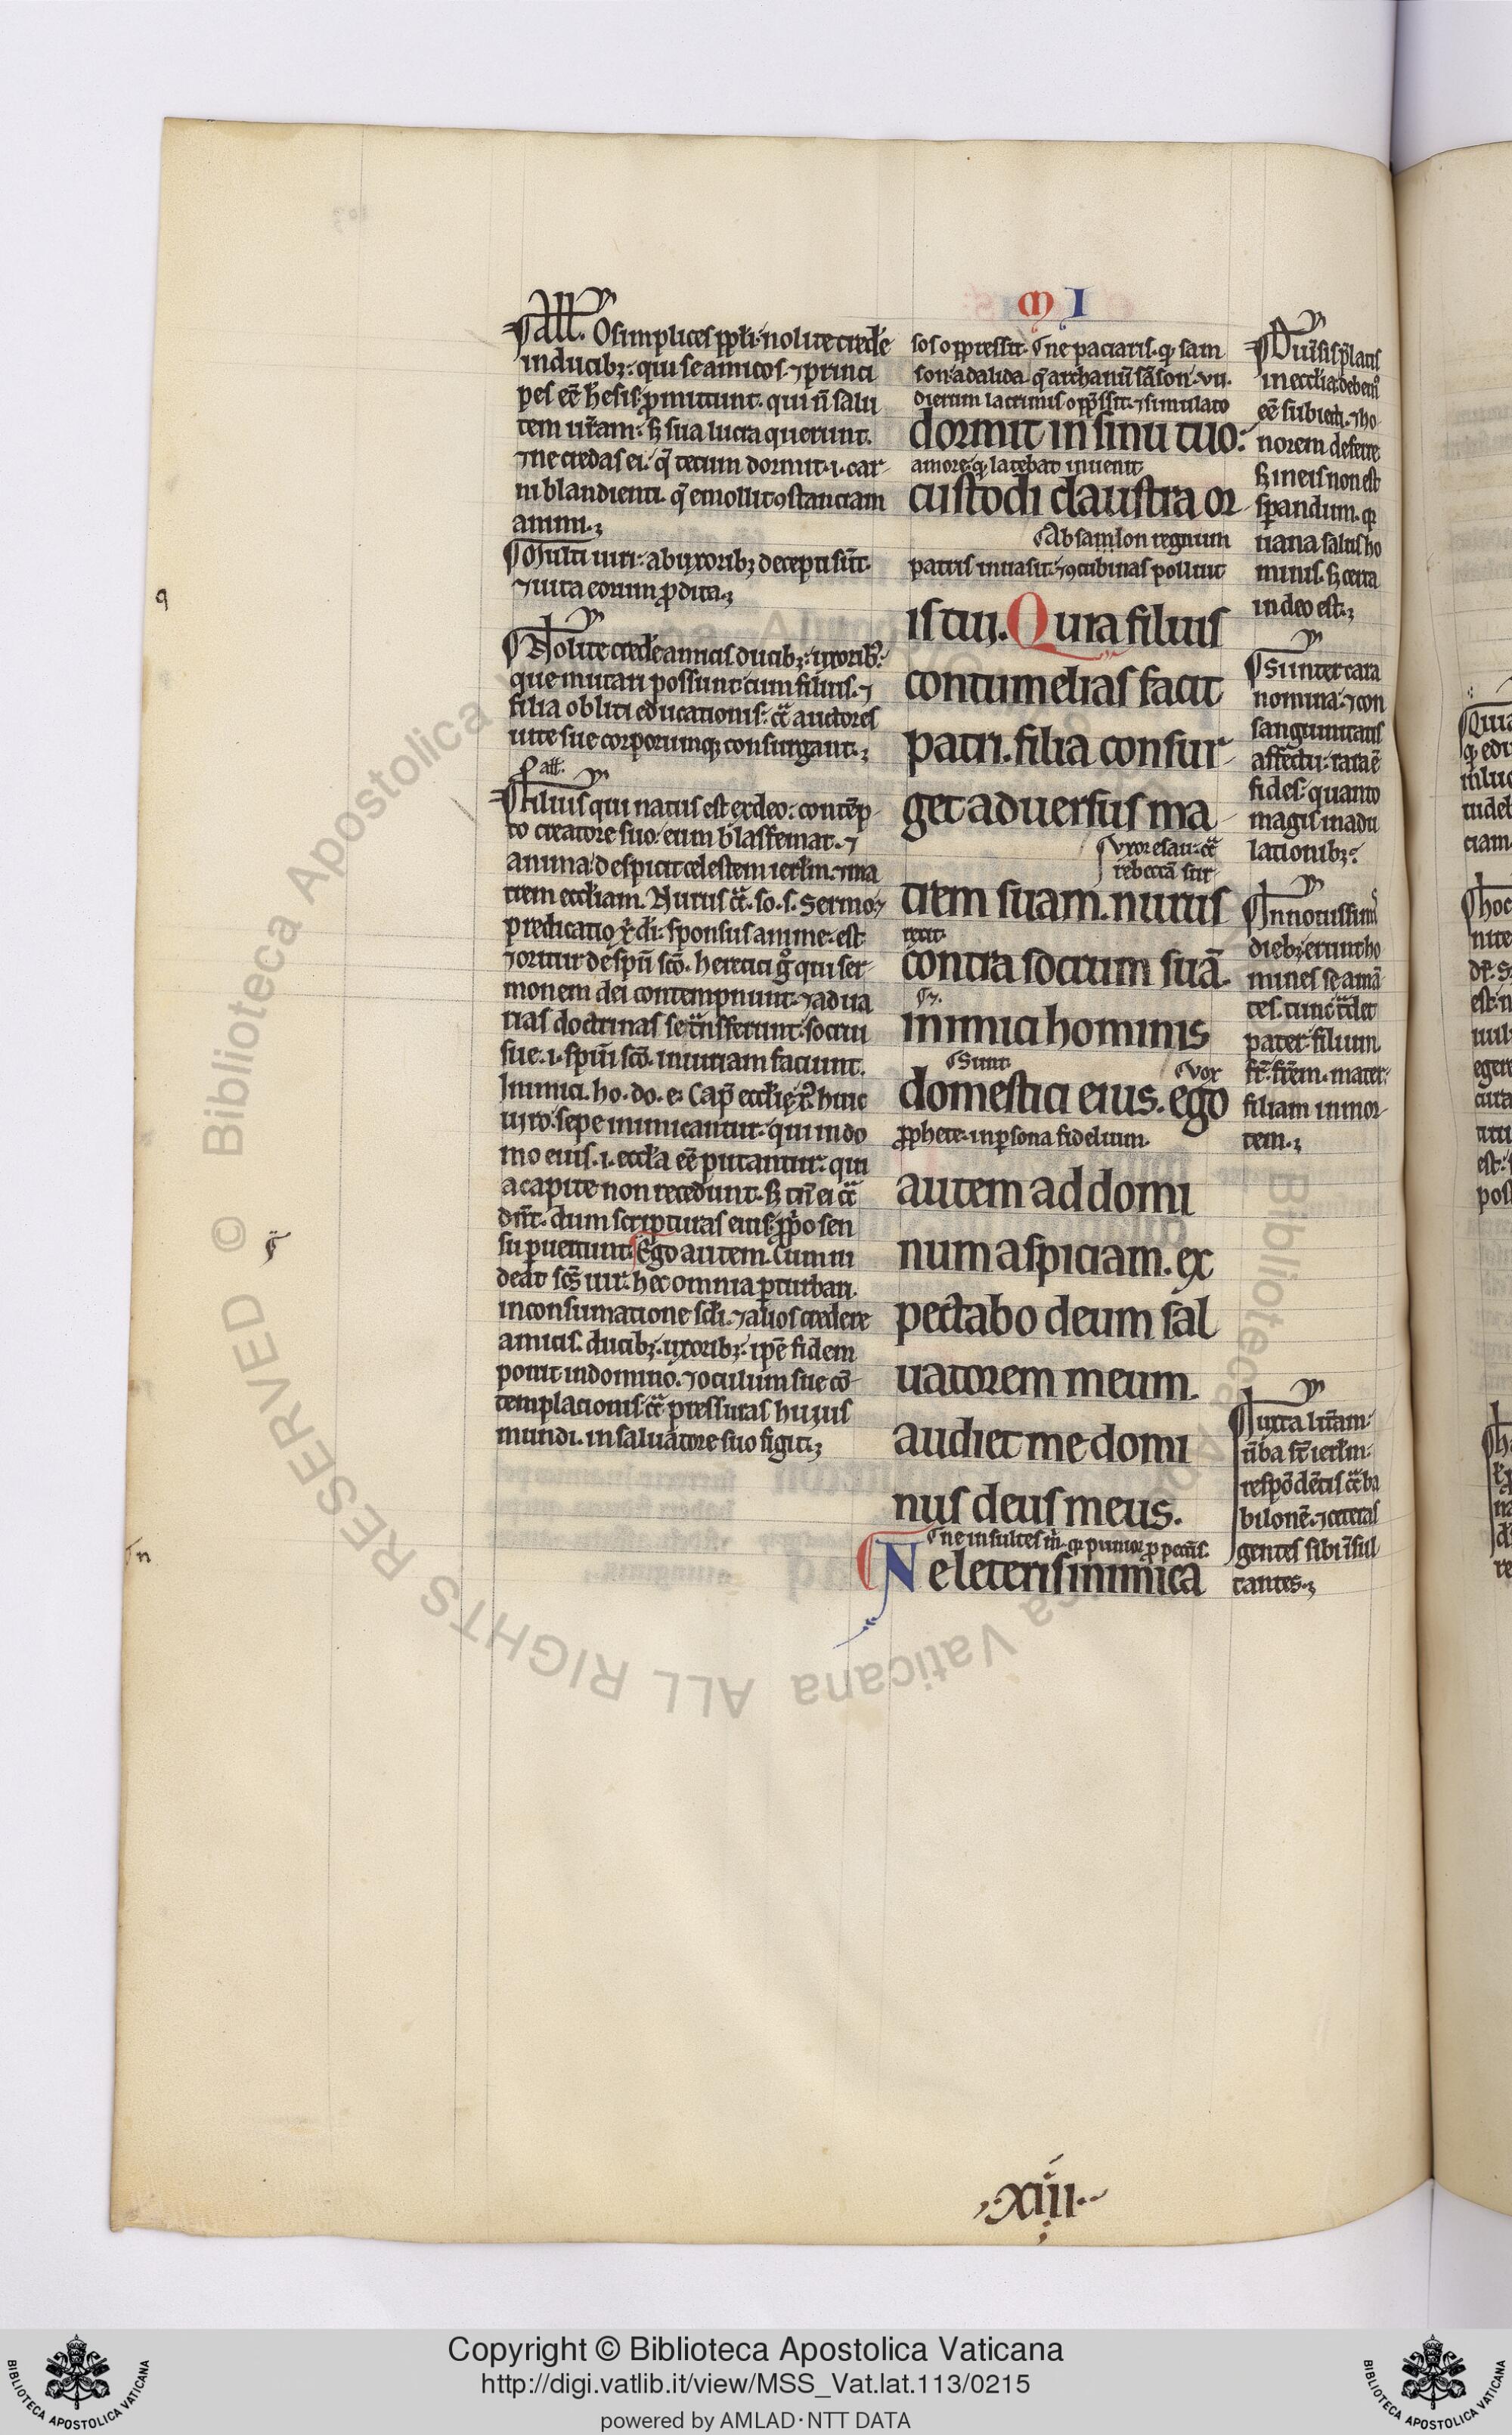 M I
¶ All'. O simplices pp̄li. nolite credẽ
in ducibꝫ: qui se amicos. ⁊ princi
pes eẽ h̃esis ꝓmittunt. qui ñ salu
tem ur̃am: sꝫ sua lucra querunt.
⁊ ne credas ei. q̃ tecum dormit. i. car
ni blandienti. q̃ emollit ꝯstanciam
animi.
¶ Multi uiri: ab uxoribꝫ decepti sũt.
⁊ uita eorum ꝓdita.
¶ Nolite credẽ amicis ducibꝫ: uxoribꝫ:
que mutari possunt cum filius. ⁊
filia obliti educationis: cͣ auctores
uite sue corporumqꝫ consurgant.
all'.
¶ Filius qui natus est ex deo: contẽp
to creatore suo: eum blasfemat. ⁊
anima despicit celestem ierl̃m. ⁊ ma
trem eccl̃iam. Nurus cͣ. so. s. Sermo ⁊
predicatio x̃ d̃i: sponsus anime est.
⁊ oritur de spũ scõ. heretici gͦ qui ser
monem dei contempnunt: ⁊ ad ua
rias doctrinas se tͣnsferunt: socrui
sue. i. spũi scõ. iniuriam faciunt.
Inimici. ho. do. e. Cap̃ eccl̃ię x̃. huic
uiro sepe inimicantur: qui in do
mo eius. i. eccl̃a eẽ putantur: qui
a capite non recedunt. sꝫ tñ ei cͣ
dñt. dum scripturas eius pp̃o sen
su ꝑuertunt. ¶ Ego autem. Cum ui
deat sc̃s uir: hec omnia ꝑturbari
in consumatione sc̃li. ⁊ alios credere
amicis. ducibꝫ. uxoribꝫ: ip̃e fidem
ponit in domino. ⁊ oculum sue cõ
templationis: cͣ pressuras huius
mundi. in saluatore suo figit.
sos oppressit. ¶ ne paciaris. qͥ sam
son. a dalida
dierum lacrimis opp̃ssit. ⁊ simulato
dormit in sinu tuo.
amore: qͥ latebat inuenit.
custodi claustra or
¶ Absamlon regnum
patris inuasit: ⁊ ꝯcubinas polluit
is tui. Quia filius
contumelias facit
patri. filia consur
get aduersus ma
¶ Uxor esau: cͣ
rebeccã sur
trem suam. nurus
rexit.
contra socrum suã.
¶ ⁊.
inimici hominis
¶ Sunt
¶ vox
domestici eius. ego
ꝓphete. in ꝑsona fidelium.
autem ad domi
num aspiciam. ex
pectabo deum sal
uatorem meum.
audiet me domi
nus deus meus.
¶ ne insultes m̃. qͥ punior ꝓ peccatis.
¶ Ne leteris inimica
¶ Diu̾sis p̃latis
in eccl̃ia debemꝰ
eẽ subiecti. ⁊ ho
norem deferre
sꝫ in eis non est
sp̃andum. qͥ
uana salus ho
minis. sꝫ certa
in deo est.
¶ Sunt cara
nomina: ⁊ con
sanguinitatis
affectu: rara ẽ
fides: quanto
magis in adu
lationibꝫ.
¶ In nouissimis
diebꝫ erunt ho
mines se amã
tes. tunc tͣdet
pater filium
fr̃. fr̃em. mater
filiam in mor
tem.
¶ Iuxta litt̾am.
ũba st̃ ierl̃m.
respõdẽtis cͣ ba
bilonẽ. ⁊ ceteras
gentes sibi ĩsul
tantes.
.xiii.
Copyright © Biblioteca Apostolica Vaticana
http://digi.vatlib.it/view/MSS_Vat.lat.113/0215
powered by AMLAD·NTT DATA
BIBLIOTECA APOSTOLICA VATICANA
BIBLIOTECA APOSTOLICA VATICANA
© Biblioteca Apostolica Vaticana ALL RIGHTS RESERVED